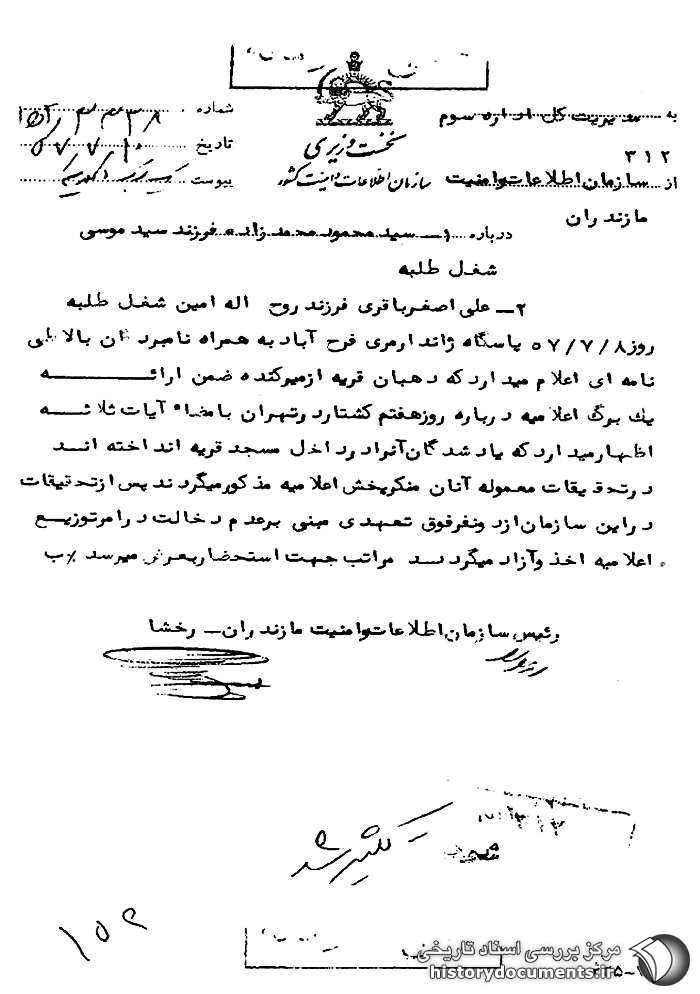 به مدیریت کل اداره سوم
۳۱۲
از سازمان اطلاعات و امنیت
مازندران
نخست وزیری
سازمان اطلاعات و امنیت کشور
شماره
تاریخ ۵۷/۷/۱۰
پیوست
درباره ۱ـ سید محمود محمدزاده فرزند سید موسی
شغل طلبه
۲ـ علی اصغر باقری فرزند روح اله امین شغل طلبه
روز ۵۷/۷/۸ پاسگاه ژاندارمری فرح آباد به همراه نامبردگان بالا طی
نامه ای اعلام میدارد که دهبان قریه ازمیرکنده ضمن ارائـــــــه
یک برگ اعلامیه درباره روز هفتم کشتار در تهران با مضاء آیات ثلاثـــه
اظهار میدارد که یاد شدگان آنرا در داخل مسجد قریه انداخته انــد
در تحقیقات معموله آنان منکر پخش اعلامیه مذکور میگردند پس از تحقیقات
در این سازمان از دو نفر فوق تعهدی مبنی بر عدم دخالت در امر توزیــع
اعلامیه اخذ و آزاد میگردنــد مراتب جهت استحضار بعرض میرسد ٪ ب
رئیس سازمان اطلاعات و امنیت مازندران ـ رخشا
تکثیر شد
۱۵۴
مرکز بررسی اسناد تاریخی
historydocuments.ir